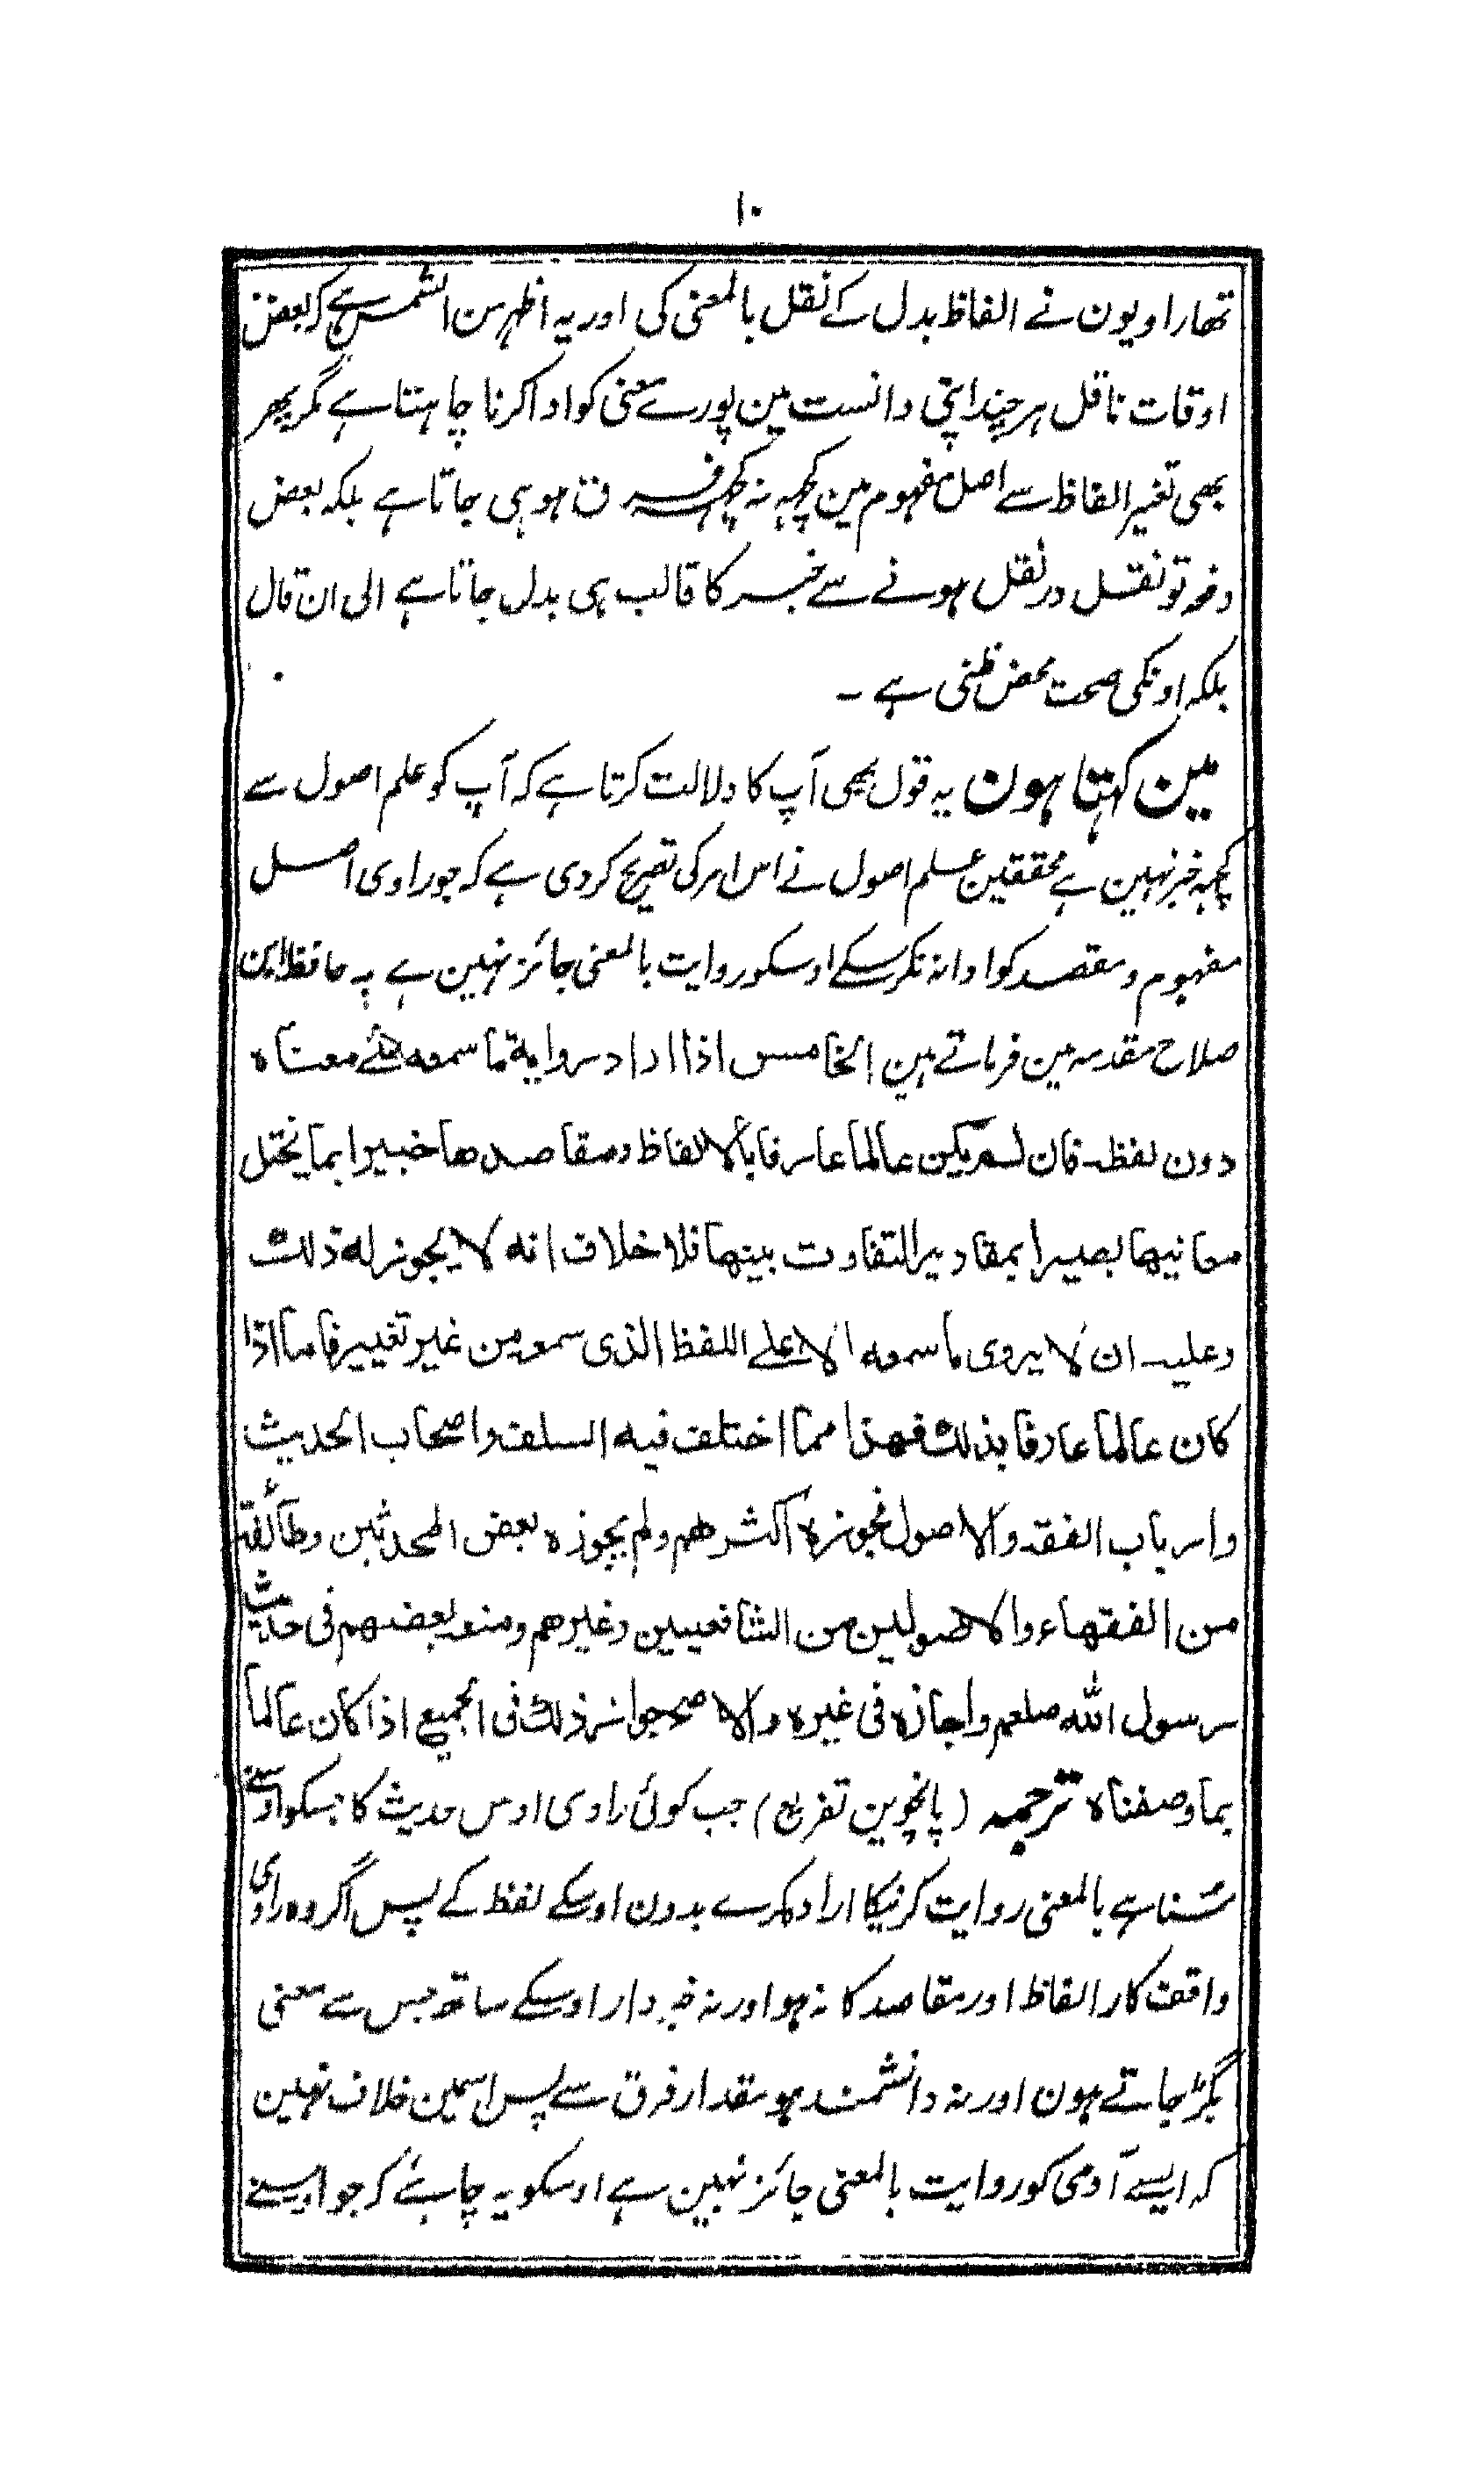 ۱۰
تھا راویون نے الفاظ بدل کے نقل بالمعنی کی اور یہ اظہر من الشمس ہے کہ بعض
اوقات ناقل ہر چند اپنی دانست مین پورے معنی کو ادا کرنا چاہتا ہے مگر پھر
بھی تغیر الفاظ سے اصل مفہوم مین کچہہ نہ کچہہ فرق ہو ہی جاتا ہے بلکہ بعض
دفعہ تو نقل در نقل ہونے سے خبر کا قالب ہی بدل جاتا ہے الی ان قال
بلکہ اونکی صحت محض ظنی ہے ۔
مین کہتا ہون یہ قول بھی آپ کا دلالت کرتا ہے کہ آپ کو علم اصول سے
کچہہ خبر نہین ہے محققین علم اصول نے اس امر کی تصریح کردی ہے کہ جو راوی اصل
مفہوم و مقصد کو ادا نہ کرسکے اوسکو روایت بالمعنی جائز نہین ہے حافظ ابن
صلاح مقدمہ مین فرماتے ہین الخامس اذا اراد روایة ما سمعه علے معناه
دون لفظہ فان لم یکن عالما عارفا بالالفاظ ومقاصدها خبیرا بما یختل
معانیها بصیرا بمقادیر التفاوت بینها فلا خلاف انه لا یجوز له ذلك
وعلیہ ان لا یروی ما سمعه الا علے اللفظ الذی سمعہ من غیر تغییر فاما اذا
کان عالما عارفا بذلك فهذا مما اختلف فیه السلف واصحاب الحدیث
وارباب الفقہ والاصول فجوزه اکثرهم ولم یجوزه بعض المحدثین وطائفة
من الفقهاء والاصولیین من الشافعیین وغیرهم ومنعہ بعضهم فی حدیث
رسول الله صلعم واجازه فی غیره والاصح جواز ذلك فی الجمیع اذا کان عالما
بما وصفناه ترجمہ (پانچوین تفریع) جب کوئی راوی اوس حدیث کا جسکو اوسنے
سنا ہے بالمعنی روایت کرنیکا ارادہ کرے بدون اوسکے لفظ کے پس اگر وہ راوی
واقف کار الفاظ اور مقاصد کا نہ ہو اور نہ خبردار اوسکے ساتھ جس سے معنی
بگڑ جاتے ہون اور نہ دانشمند ہو مقدار فرق سے پس اسمین خلاف نہین
کہ ایسے آدمی کو روایت بالمعنی جائز نہین ہے اوسکو یہ چاہئے کہ جو اوسنے